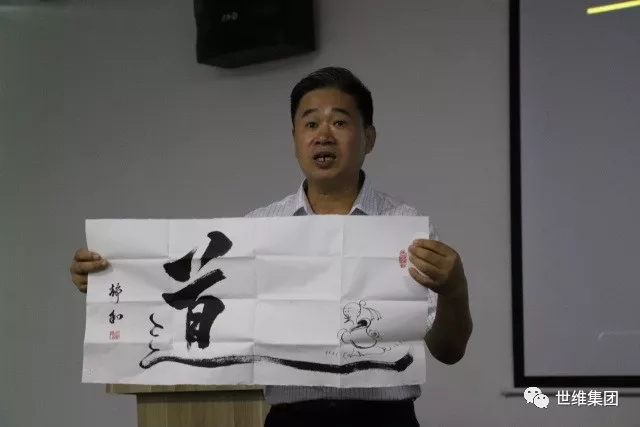 道
静和
世维集团